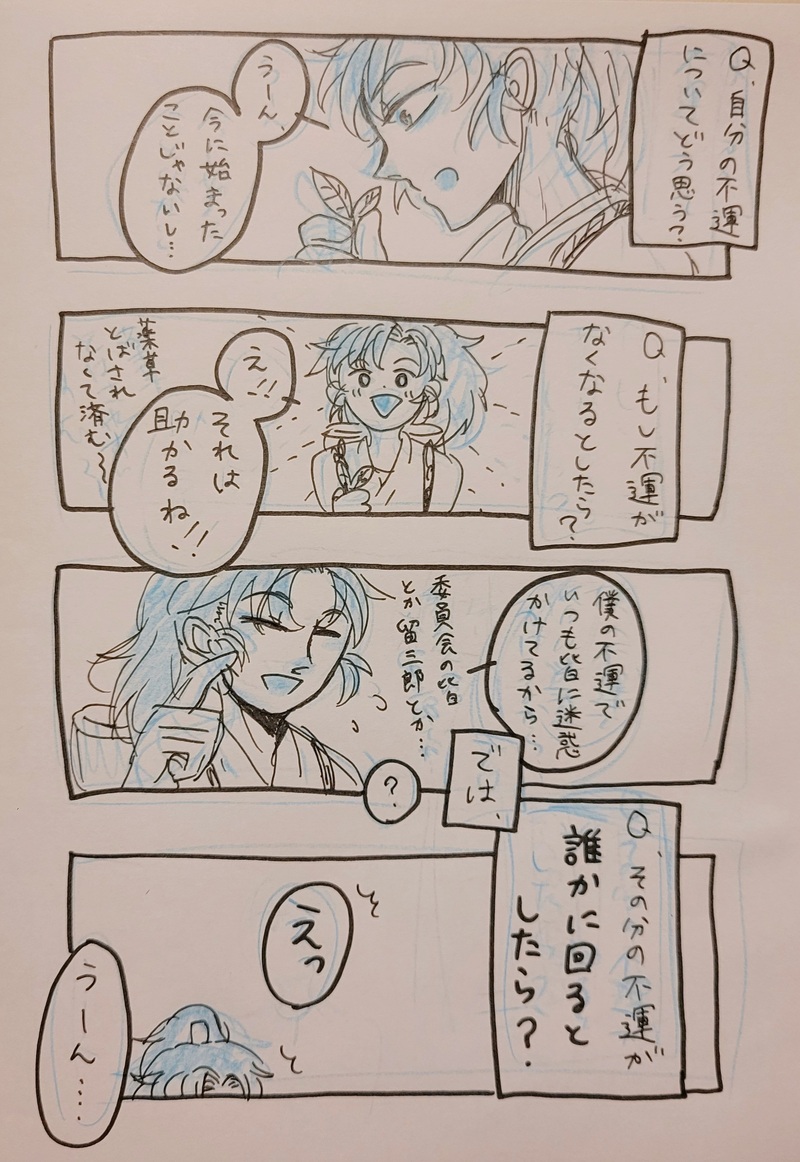 Q、自分の不運
についてどう思う?
うーん、
今に始まった
ことじゃないし…
Q、もし不運が
なくなるとしたら?
え!!
それは
助かるね!!
薬草
とばされ
なくて済む〜
僕の不運で
いつも皆に迷惑
かけてるから…
委員会の皆
とか留三郎とか…
?
では、
Q、その分の不運が
誰かに回ると
したら?
えっ
うーん…